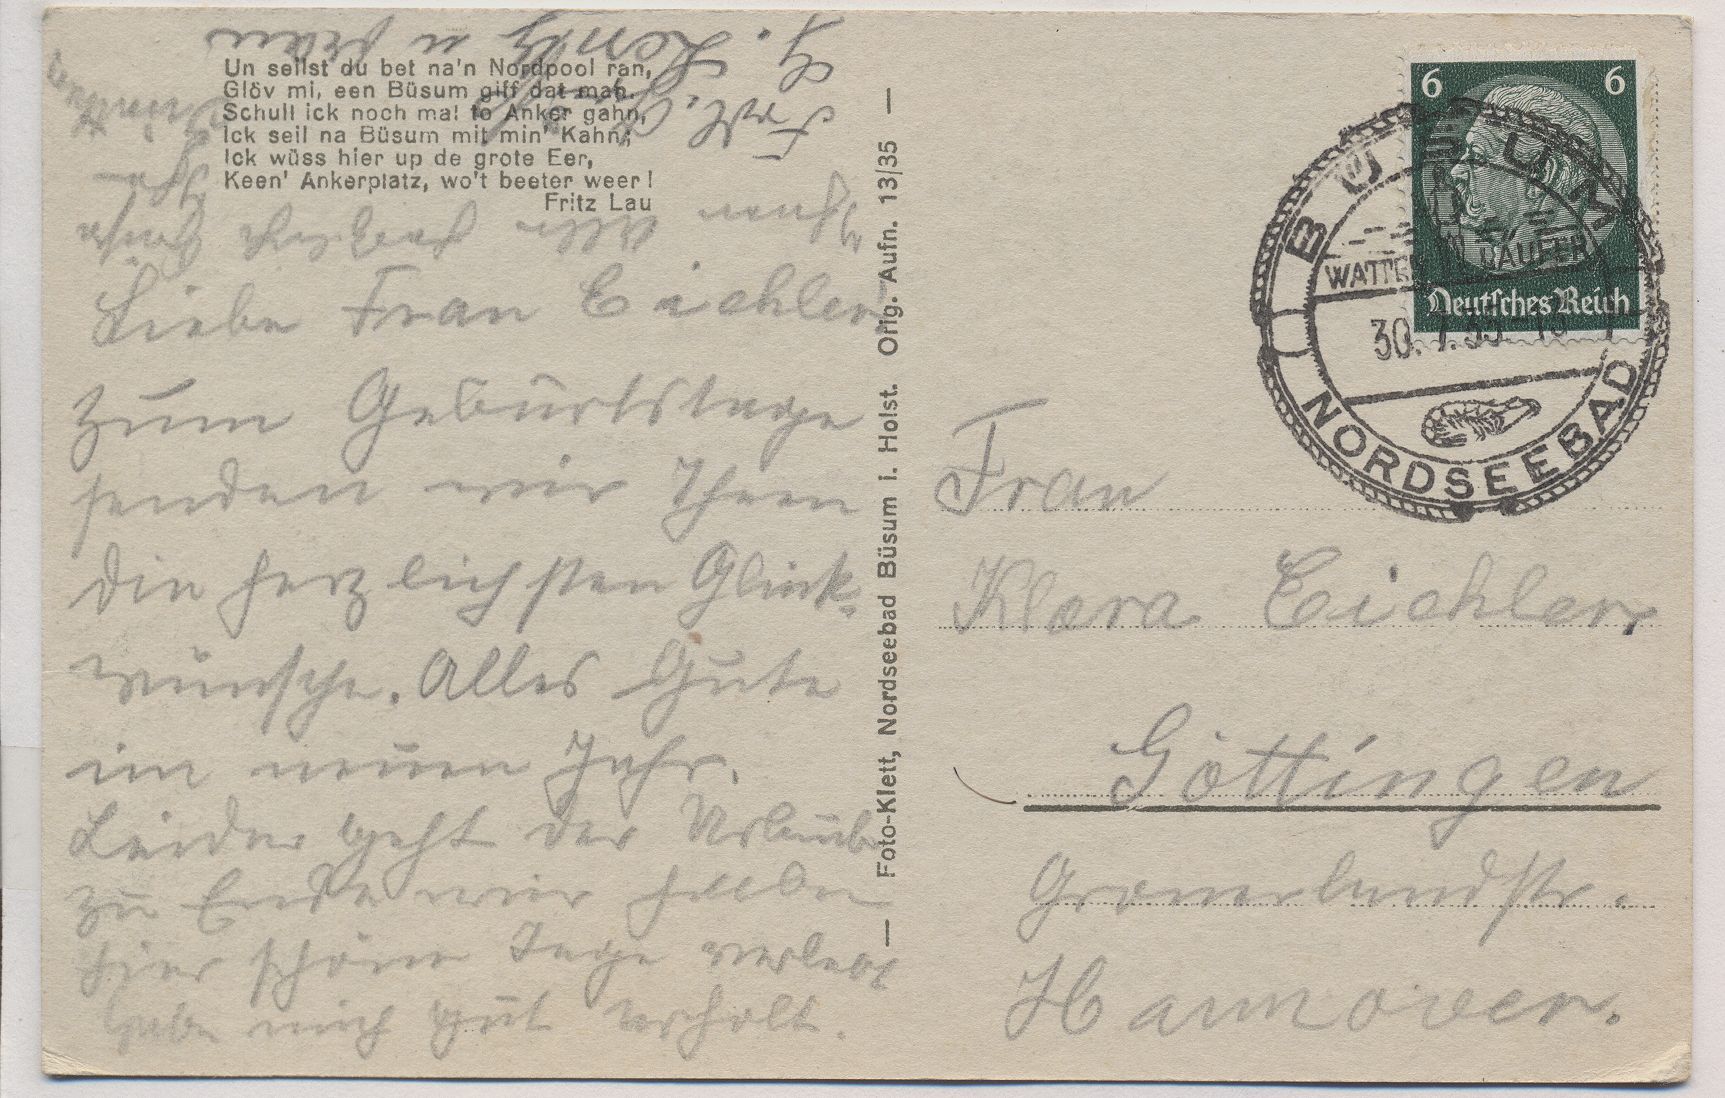 Un seilst du bet na'n Nordpool ran,
Glöv mi, een Büsum giff dat man.
Schull ick noch mal to Anker gahn,
Ick seil na Büsum mit min' Kahn;
Ick wüss hier up de grote Eer,
Keen' Ankerplatz, wo't beeter weer!
Fritz Lau
Liebe Frau Eichler
zum Geburtstage
senden wir Ihnen
die herzlichsten Glück-
wünsche. Alles Gute
im neuen Jahr.
Leider geht der Urlaub
zu Ende wir haben
hier schöne Tage verlebt
habe mich gut erholt.
Ihnen allen herzliche Grüße
Ihr
G. u Frau
Foto-Klett, Nordseebad Büsum i. Holst. Orig. Aufn. 13/35
6 6
Deutsches Reich
BÜSUM
WATTENLÄUFER
30.7.35.
NORDSEEBAD
Frau
Klara Eichler,
Göttingen
Gronerlandstr.
Hannover.